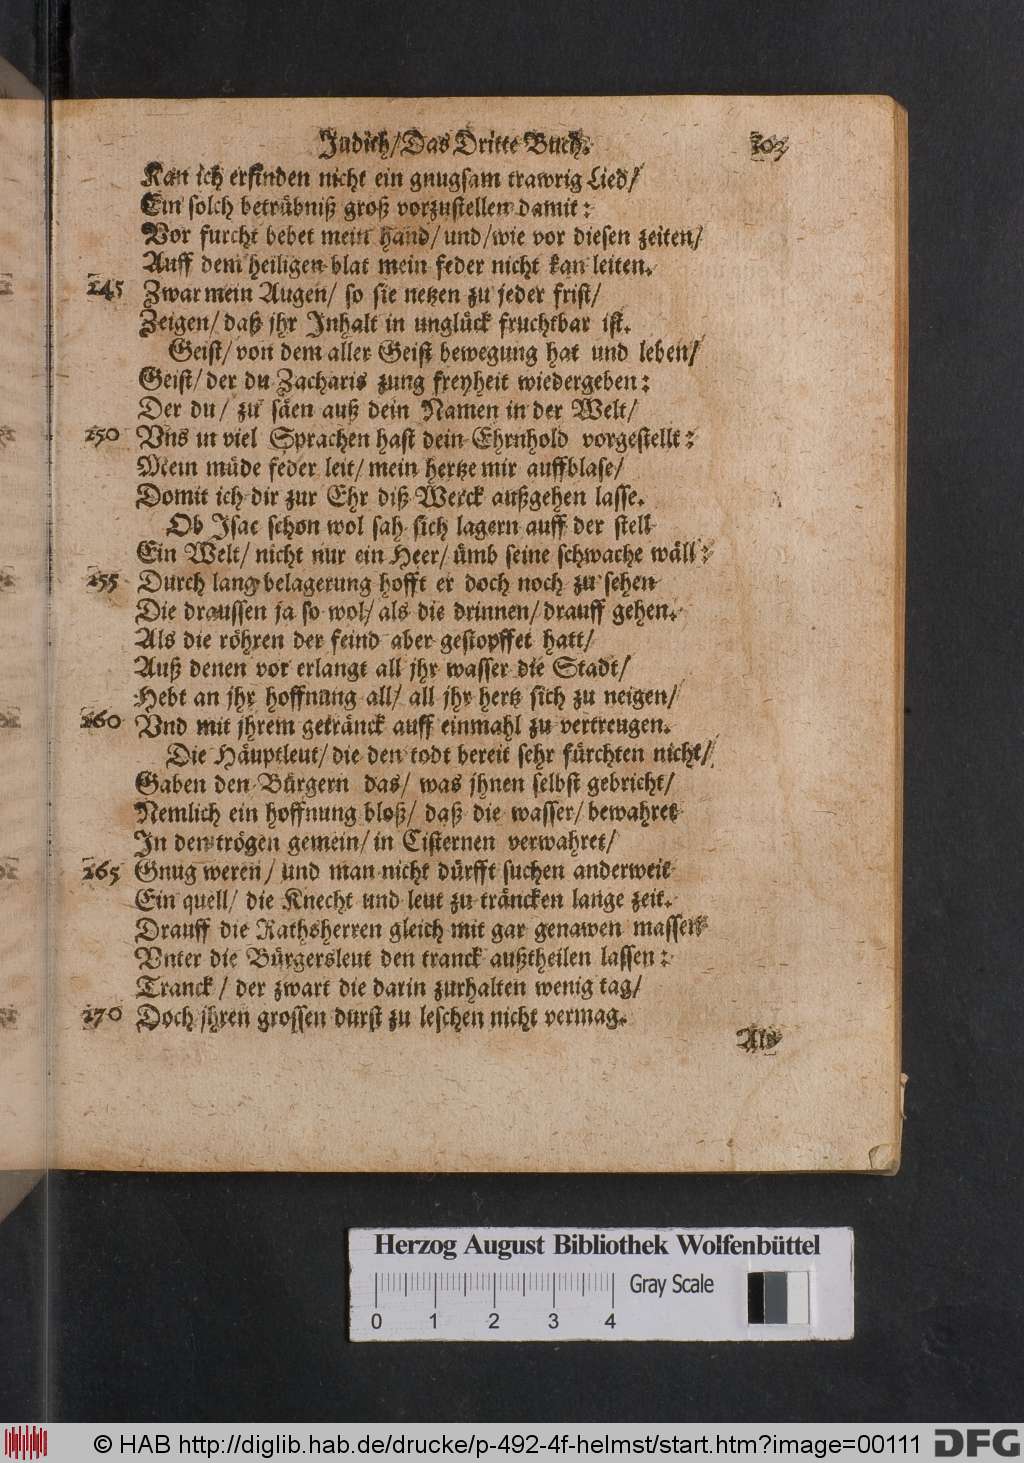 Judith/Das Dritte Buch. 103
Kan ich erfinden nicht ein gnugsam trawrig Lied/
Ein solch betrübniß groß vorzustellen damit:
Vor furcht bebet mein hand/und/wie vor diesen zeiten/
Auff dem heiligen blat mein feder nicht kan leiten.
245 Zwar mein Augen/ so sie netzen zu jeder frist/
Zeigen/ daß jhr Inhalt in unglück fruchtbar ist.
Geist/ von dem aller Geist bewegung hat und leben/
Geist/ der du Zacharis zung freyheit wiedergeben:
Der du/ zu säen auß dein Namen in der Welt/
250 Vns in viel Sprachen hast dein Ehrnhold vorgestellt:
Mein müde feder leit/ mein hertze mir auffblase/
Domit ich dir zur Ehr diß Werck außgehen lasse.
Ob Isac schon wol sah sich lagern auff der stell
Ein Welt/ nicht nur ein Heer/ ümb seine schwache wäll:
255 Durch lang belagerung hofft er doch noch zu sehen
Die draussen ja so wol/ als die drinnen/ drauff gehen.
Als die röhren der feind aber gestopffet hatt/
Auß denen vor erlangt all jhr wasser die Stadt/
Hebt an jhr hoffnung all/ all jhr hertz sich zu neigen/
260 Vnd mit jhrem getränck auff einmahl zu vertreugen.
Die Häuptleut/ die den todt bereit sehr fürchten nicht/
Gaben den Bürgern das/ was jhnen selbst gebricht/
Nemlich ein hoffnung bloß/ daß die wasser/ bewahret
In den trögen gemein/ in Cisternen verwahret/
265 Gnug weren/ und man nicht dürfft suchen anderweit
Ein quell/ die Knecht und leut zu träncken lange zeit.
Drauff die Rathsherren gleich mit gar genawen massen
Vnter die Bürgersleut den tranck außtheilen lassen:
Tranck/ der zwart die darin zurhalten wenig tag/
270 Doch jhren grossen durst zu leschen nicht vermag.
Als
Herzog August Bibliothek Wolfenbüttel
Gray Scale
0 1 2 3 4
© HAB http://diglib.hab.de/drucke/p-492-4f-helmst/start.htm?image=00111 DFG